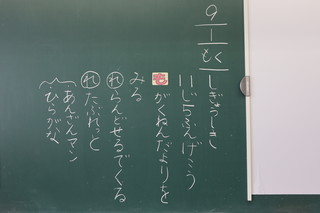 9
1
もく
しぎょうしき
げこう
がくねんだよりを
みる
れ らんどせるでくる
れ たぶれっと
あんざんマン
ひらがな